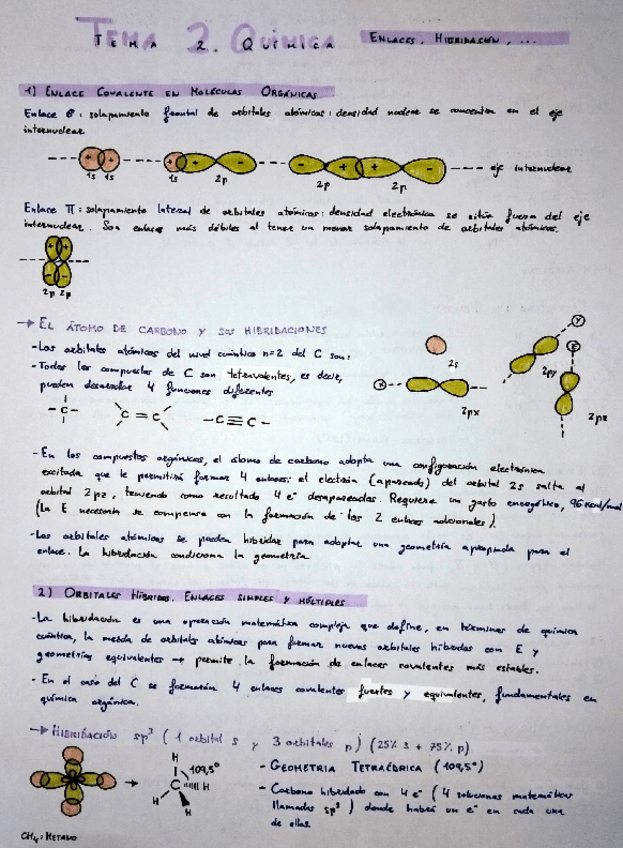 TEMA 2. QUÍMICA ENLACES, HIBRIDACIÓN, ...
1) ENLACE COVALENTE EN MOLÉCULAS ORGÁNICAS
Enlace σ: solapamiento frontal de orbitales atómicos: densidad nuclear se concentra en el eje
internuclear.
+ + + + - - + + - eje internuclear
1s 1s 1s 2p 2p 2p
Enlace π: solapamiento lateral de orbitales atómicos: densidad electrónica se sitúa fuera del eje
internuclear. Son enlaces más débiles al tener un menor solapamiento de orbitales atómicos.
+ +
- -
2p 2p
→ EL ÁTOMO DE CARBONO Y SUS HIBRIDACIONES
- Los orbitales atómicos del nivel cuántico n=2 del C son:
- Todos los compuestos de C son tetravalentes, es decir,
pueden desarrollar 4 funciones diferentes
-C- C=C -C≡C-
2s
X 2px
Y 2py
Z 2pz
- En los compuestos orgánicos, el átomo de carbono adopta una configuración electrónica
excitada que le permitirá formar 4 enlaces: el electrón (apareado) del orbital 2s salta al
orbital 2pz, teniendo como resultado 4 e⁻ desapareados. Requiere un gasto energético, 96 kcal/mol
(La E necesaria se compensa con la formación de los 2 enlaces adicionales).
- Los orbitales atómicos se pueden hibridar para adoptar una geometría apropiada para el
enlace. La hibridación condiciona la geometría.
2) ORBITALES HÍBRIDOS. ENLACES SIMPLES Y MÚLTIPLES
- La hibridación es una operación matemática compleja que define, en términos de química
cuántica, la mezcla de orbitales atómicos para formar nuevos orbitales híbridos con E y
geometrías equivalentes → permite la formación de enlaces covalentes más estables.
- En el caso del C se formarán 4 enlaces covalentes fuertes y equivalentes, fundamentales en
química orgánica.
→ HIBRIDACIÓN sp³ (1 orbital s y 3 orbitales p) (25% s + 75% p)
- GEOMETRIA TETRAÉDRICA (109,5°)
- Carbono hibridado con 4 e⁻ (4 soluciones matemáticas
llamadas sp³) donde habrá un e⁻ en cada una
de ellas.
H
109,5°
C H
H H
CH₄: METANO